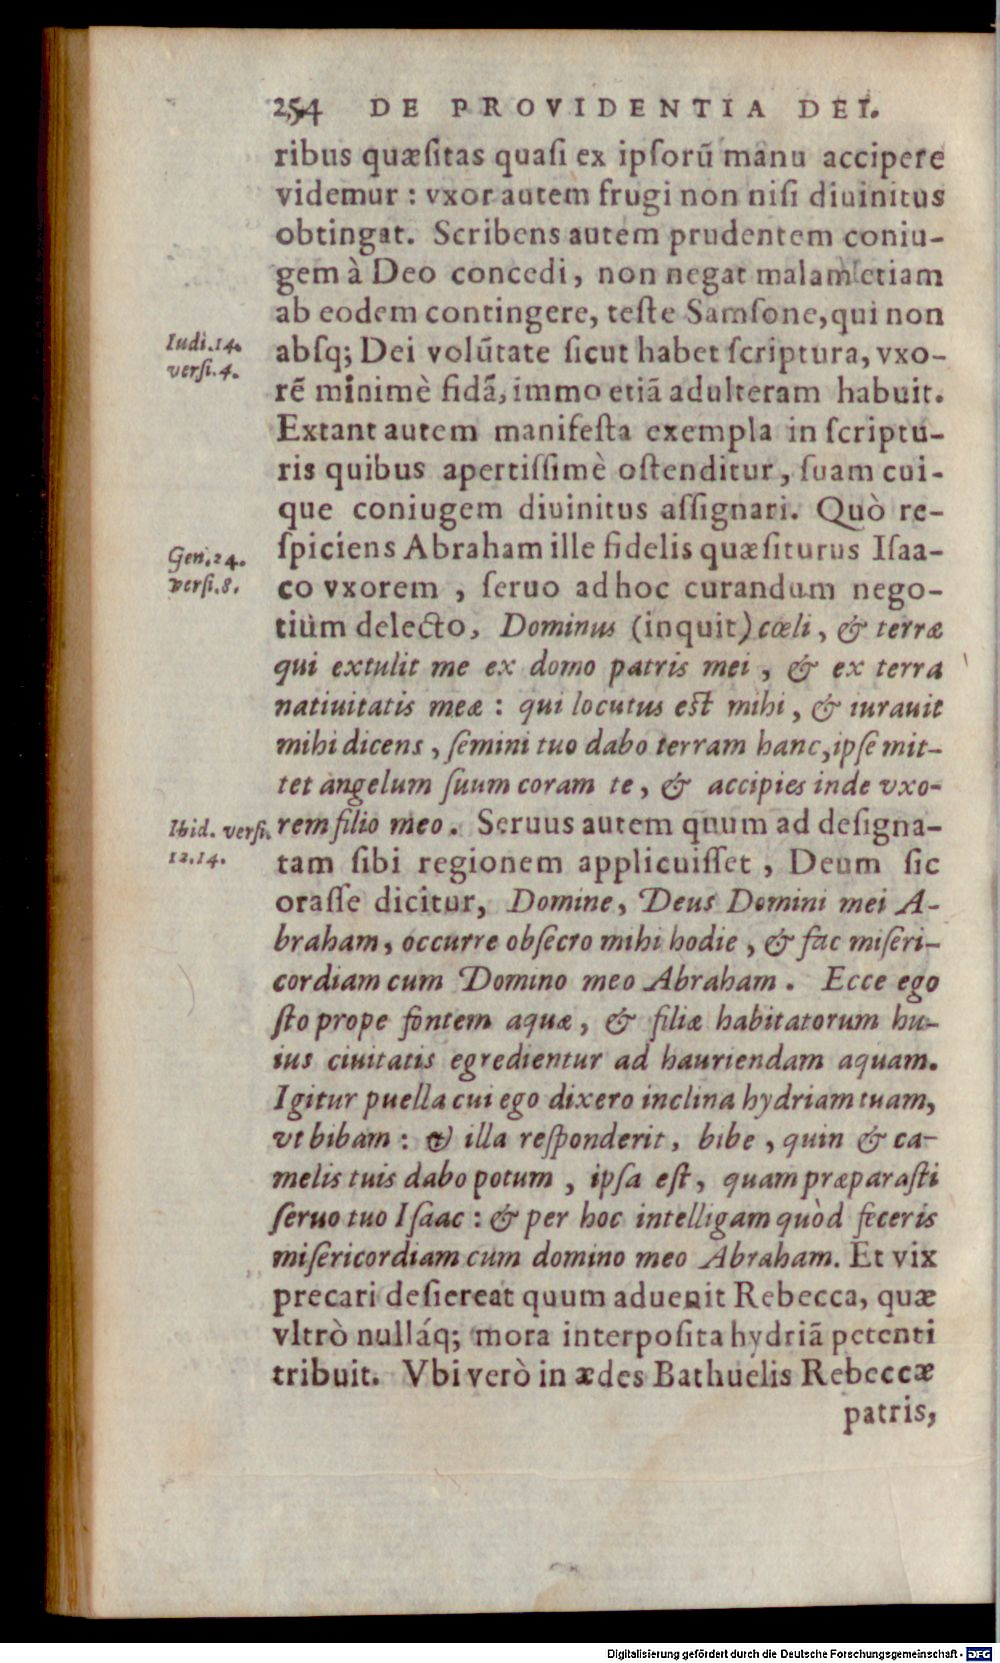 254 DE PROVIDENTIA DEI.
ribus quæsitas quasi ex ipsorũ manu accipere
videmur : vxor autem frugi non nisi diuinitus
obtingat. Scribens autem prudentem coniu-
gem à Deo concedi, non negat malam etiam
ab eodem contingere, teste Samsone, qui non
Iudi. 14.
versi. 4.
absq; Dei volũtate sicut habet scriptura, vxo-
rẽ minimè fidã, immo etiã adulteram habuit.
Extant autem manifesta exempla in scriptu-
ris quibus apertissimè ostenditur, suam cui-
que coniugem diuinitus assignari. Quò re-
Gen. 24.
versi. 8.
spiciens Abraham ille fidelis quæsiturus Isaa-
co vxorem , seruo ad hoc curandum nego-
tium delecto, Dominus (inquit) cœli, & terræ
qui extulit me ex domo patris mei , & ex terra
natiuitatis meæ : qui locutus est mihi , & iurauit
mihi dicens , semini tuo dabo terram hanc, ipse mit-
tet angelum suum coram te , & accipies inde vxo-
Ibid. versi.
12. 14.
rem filio meo. Seruus autem quum ad designa-
tam sibi regionem applicuisset , Deum sic
orasse dicitur, Domine, Deus Domini mei A-
braham, occurre obsecro mihi hodie , & fac miseri-
cordiam cum Domino meo Abraham . Ecce ego
sto prope fontem aquæ , & filiæ habitatorum hu-
ius ciuitatis egredientur ad hauriendam aquam.
Igitur puella cui ego dixero inclina hydriam tuam,
vt bibam : & illa responderit, bibe , quin & ca-
melis tuis dabo potum , ipsa est, quam præparasti
seruo tuo Isaac : & per hoc intelligam quòd feceris
misericordiam cum domino meo Abraham. Et vix
precari desiereat quum aduenit Rebecca, quæ
vltrò nulláq; mora interposita hydriã petenti
tribuit. Vbi verò in ædes Bathuelis Rebeccæ
patris,
Digitalisierung gefördert durch die Deutsche Forschungsgemeinschaft - DFG